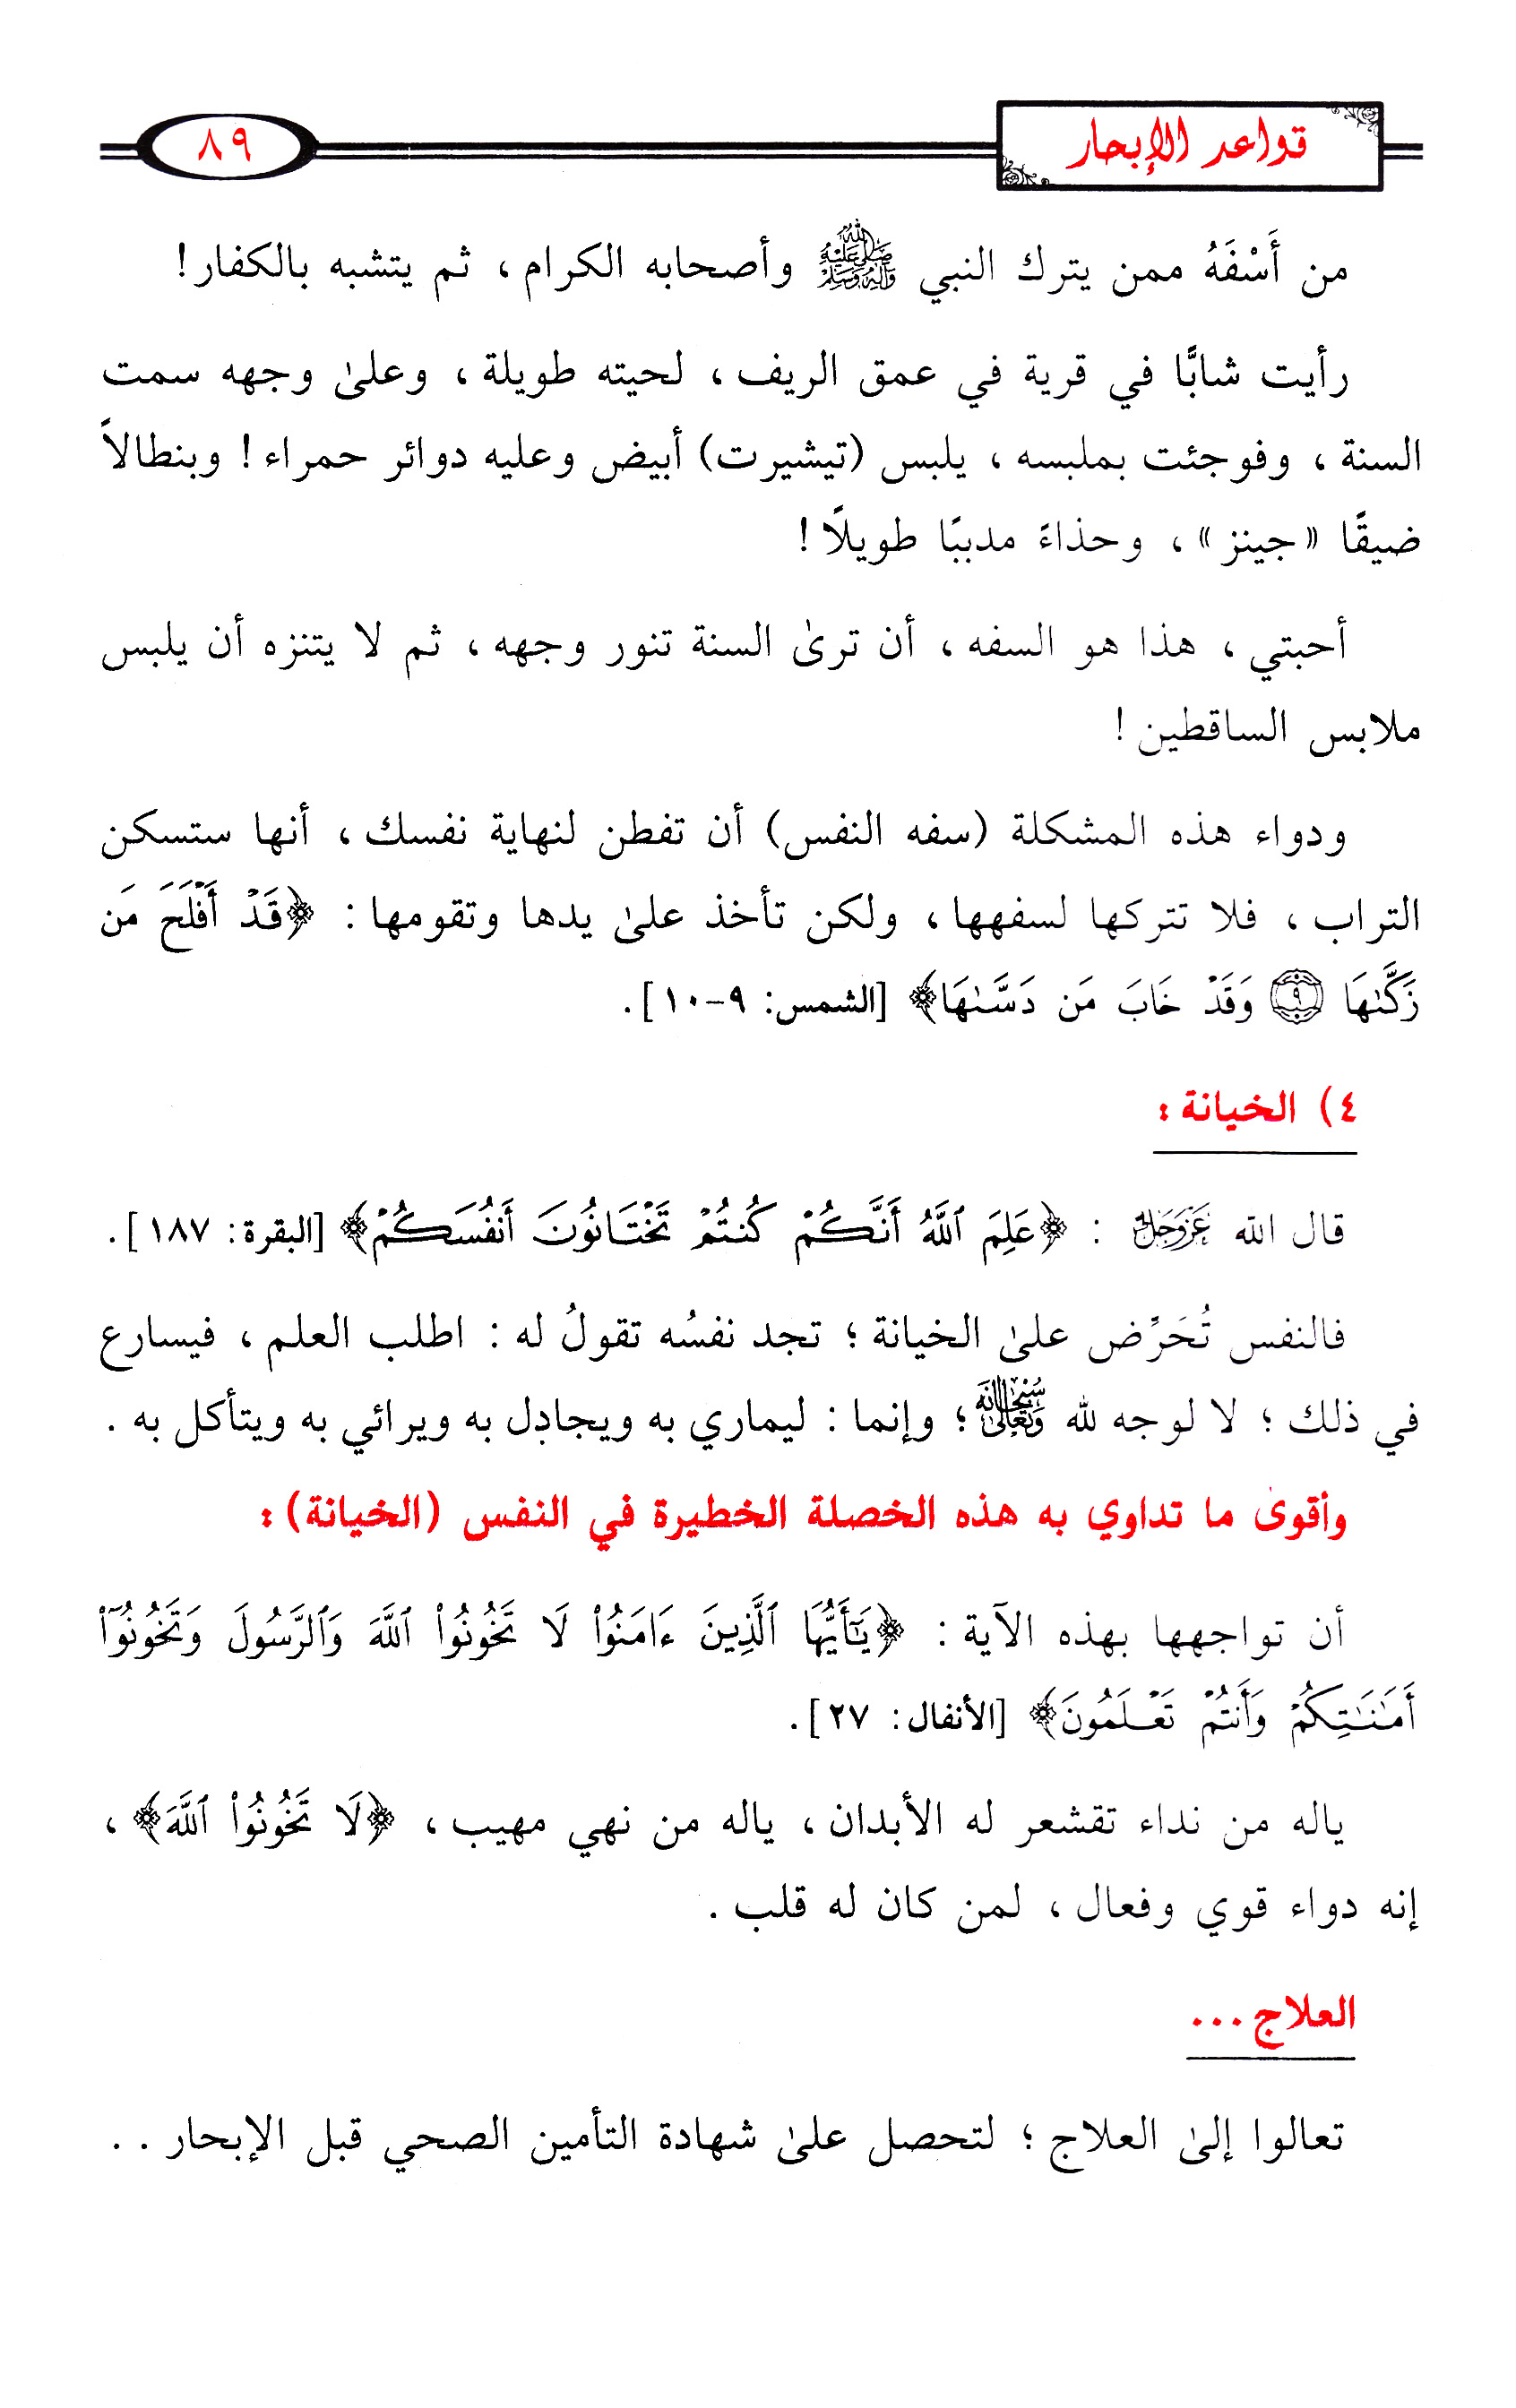 قواعد الإبحار
٨٩
من أَسْفَهُ ممن يترك النبي ﷺ وأصحابه الكرام ، ثم يتشبه بالكفار!
رأيت شابًّا في قرية في عمق الريف ، لحيته طويلة ، وعلىٰ وجهه سمت
السنة ، وفوجئت بملبسه ، يلبس (تيشيرت) أبيض وعليه دوائر حمراء! وبنطالاً
ضيقًا «جينز» ، وحذاءً مدببًا طويلًا!
أحبتي ، هذا هو السفه ، أن ترىٰ السنة تنور وجهه ، ثم لا يتنزه أن يلبس
ملابس الساقطين!
ودواء هذه المشكلة (سفه النفس) أن تفطن لنهاية نفسك ، أنها ستسكن
التراب ، فلا تتركها لسفهها ، ولكن تأخذ علىٰ يدها وتقومها : ﴿قَدْ أَفْلَحَ مَن
زَكَّىٰهَا ۝٩ وَقَدْ خَابَ مَن دَسَّىٰهَا﴾ [الشمس: ٩-١٠].
٤) الخيانة :
قال الله عَزَّوَجَلَّ : ﴿عَلِمَ ٱللَّهُ أَنَّكُمْ كُنتُمْ تَخْتَانُونَ أَنفُسَكُمْ﴾ [البقرة: ١٨٧].
فالنفس تُحَرِّض علىٰ الخيانة ؛ تجد نفسُه تقولُ له : اطلب العلم ، فيسارع
في ذلك ؛ لا لوجه لله سُبْحَانَهُ وَتَعَالَىٰ ؛ وإنما : ليماري به ويجادِل به ويرائي به ويتأكل به .
وأقوىٰ ما تداوي به هذه الخصلة الخطيرة في النفس (الخيانة) :
أن تواجهها بهذه الآية : ﴿يَٰٓأَيُّهَا ٱلَّذِينَ ءَامَنُوا۟ لَا تَخُونُوا۟ ٱللَّهَ وَٱلرَّسُولَ وَتَخُونُوٓا۟
أَمَٰنَٰتِكُمْ وَأَنتُمْ تَعْلَمُونَ﴾ [الأنفال: ٢٧].
ياله من نداء تقشعر له الأبدان ، ياله من نهي مهيب ، ﴿لَا تَخُونُوا۟ ٱللَّهَ﴾ ،
إنه دواء قوي وفعال ، لمن كان له قلب .
العلاج ...
تعالوا إلىٰ العلاج ؛ لتحصل علىٰ شهادة التأمين الصحي قبل الإبحار . .